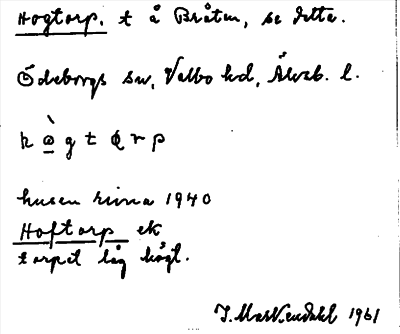 Hogtorp. t å Bråten, se detta.
Ödeborgs sn, Valbo hd, Älvsb. l.
hògtørp
husen rivna 1940
Hoftorp ek
torpet låg högt.
1961